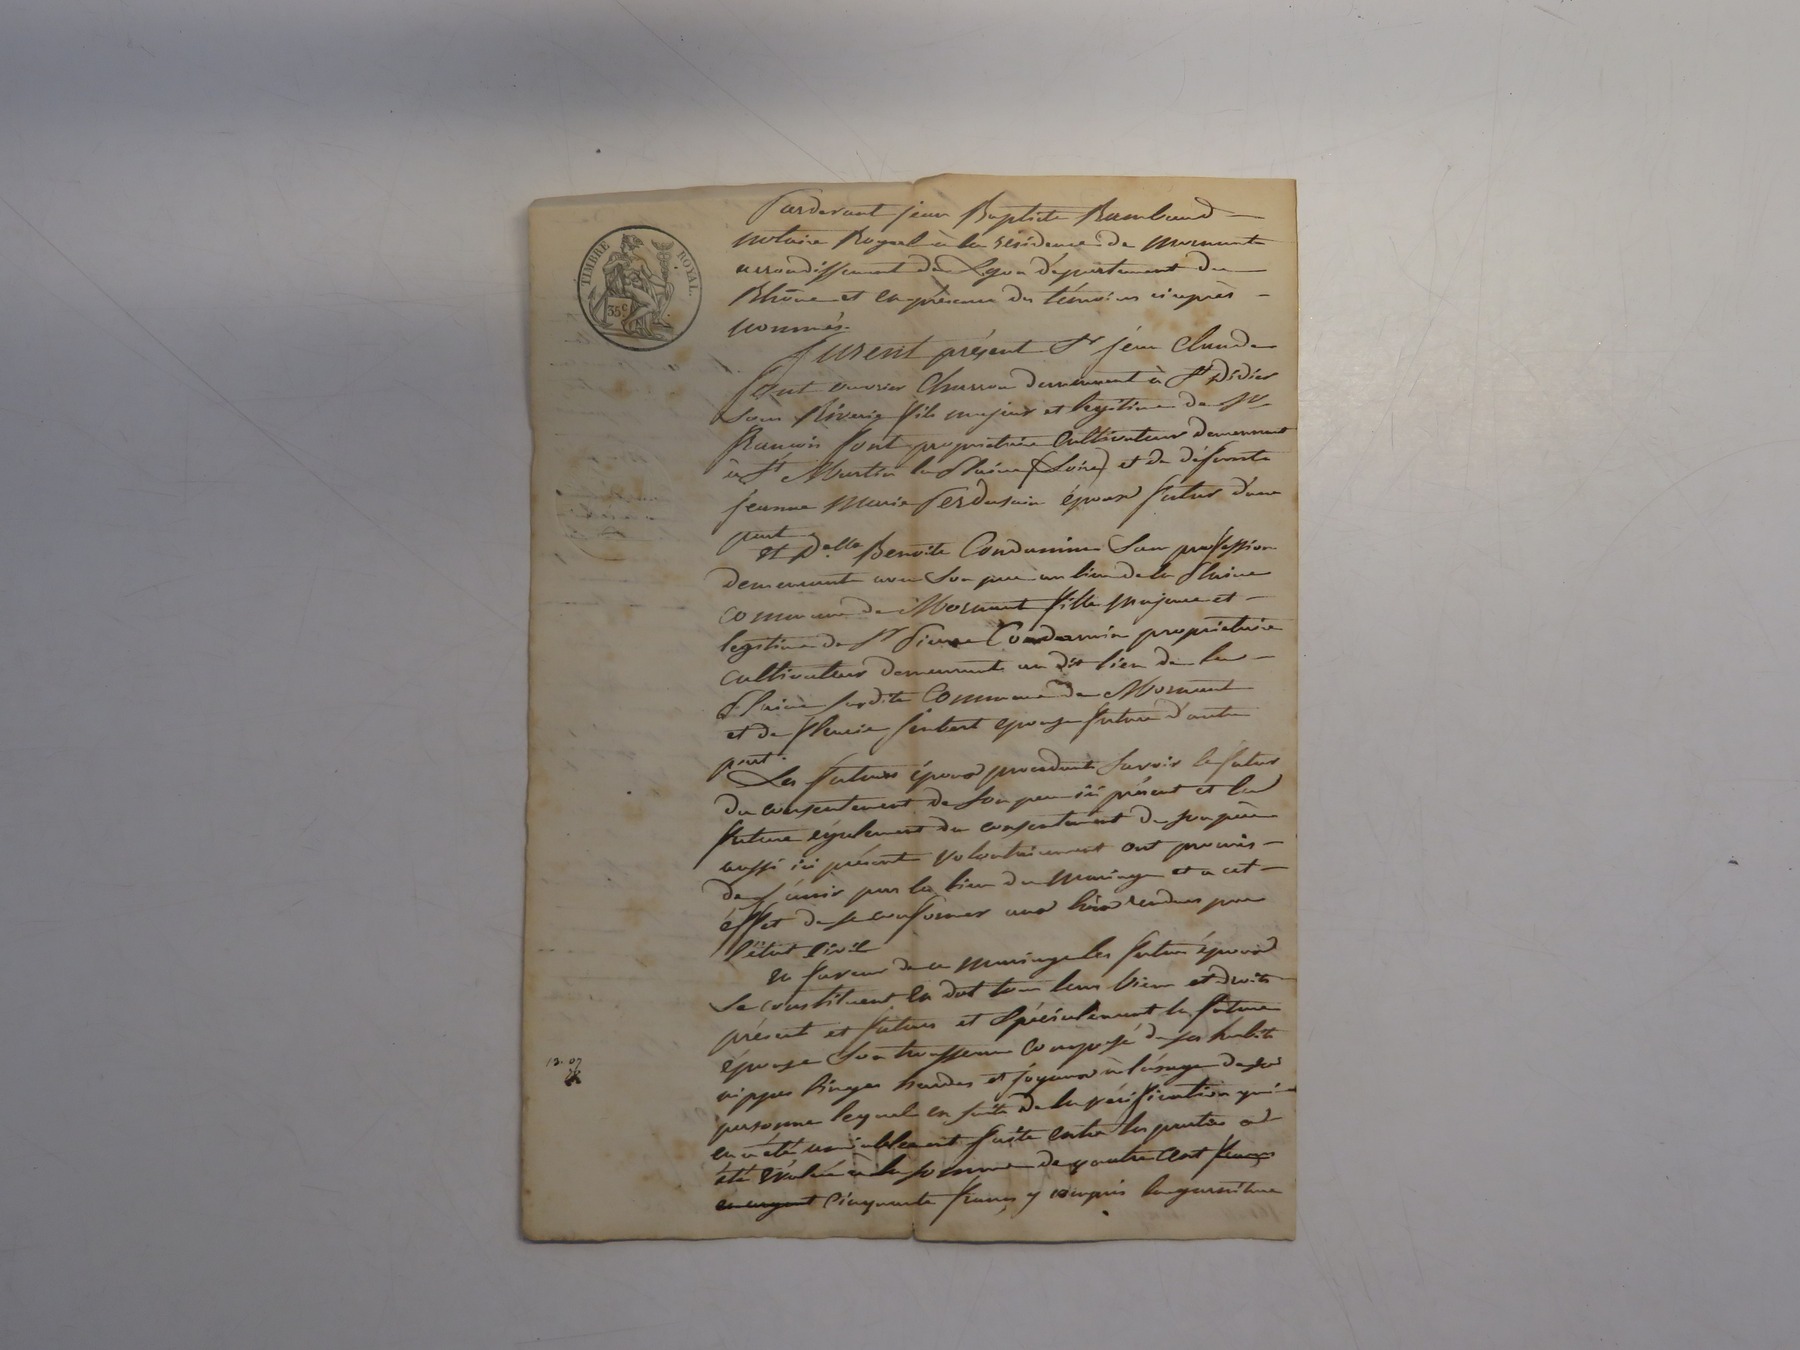 TIMBRE ROYAL.
35 c
Pardevant jean Baptiste Rambaud
notaire Royal à la résidence de Mornant
arrondissement de Lyon département du
Rhône et en présence des témoins ciaprès
nommés.
furent présent Sr jean Claude
font ouvrier Charron demeurant à St Didier
sous Riverie fils majeur et legitime de Sr
francois font propriétaire Cultivateur demeurant
à St Martin la Plaine (Loire) et de défunte
jeanne Marie époux futur d'une
part
et Delle Benoite Condamine San profession
demeurant avec son pere au lieu de la Plaine
commune de Mornant fille majeure et
legitime de Sr Pierre Condamin propriétaire
cultivateur demeurant au dit lieu de la
Plaine susdite Commune de Mornant
et de epouse future d'autre
part.
Les futurs époux procedants savoir le futur
du consentement de son pere ici présent et la
future également du consentement de son père
aussi ici présent volontairement ont promis
de s'unir par les lien du mariage et a cet
éffet de se conformer aux lois rendues pour
l'état Civil
en faveur de ce mariage les futurs époux
se constituent en dot tous leurs biens et droits
présent et futurs et spécialement la future
épouse son trousseau composé de ses habits
nippes linges hardes et joyaux à l'usage de sa
personne lequel en suite de la vérification qui
en a été amiablement faite entre les parties a
été évalué à la somme de quatre Cent francs
en argent Cinquante francs y compris la garniture
12.07